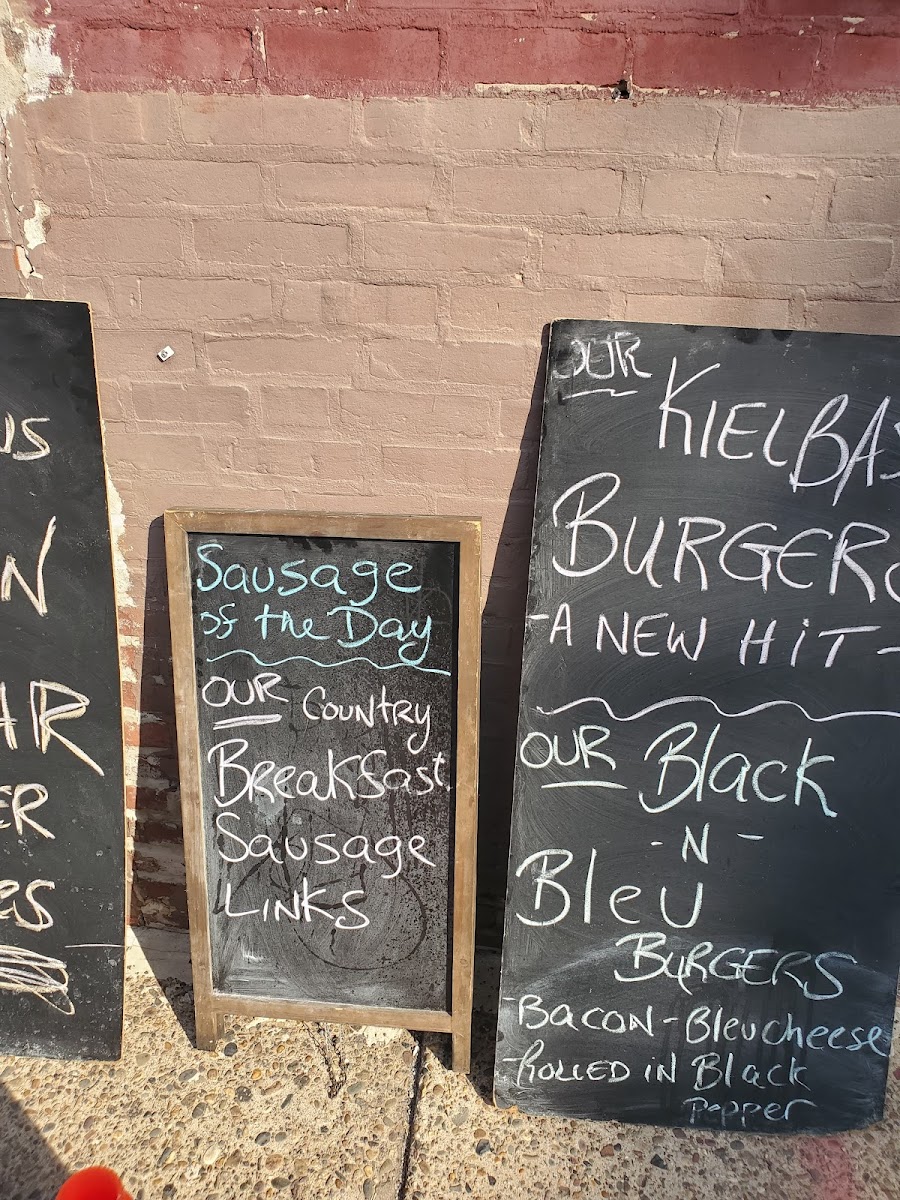 Sausage
of the Day
OUR Country
Breakfast
Sausage
LINKS
OUR
KIELBAS
BURGERS
-A NEW HiT-
OUR Black
-N-
Bleu
BURGERS
-BACON-Bleucheese
-ROLLED iN Black
Pepper